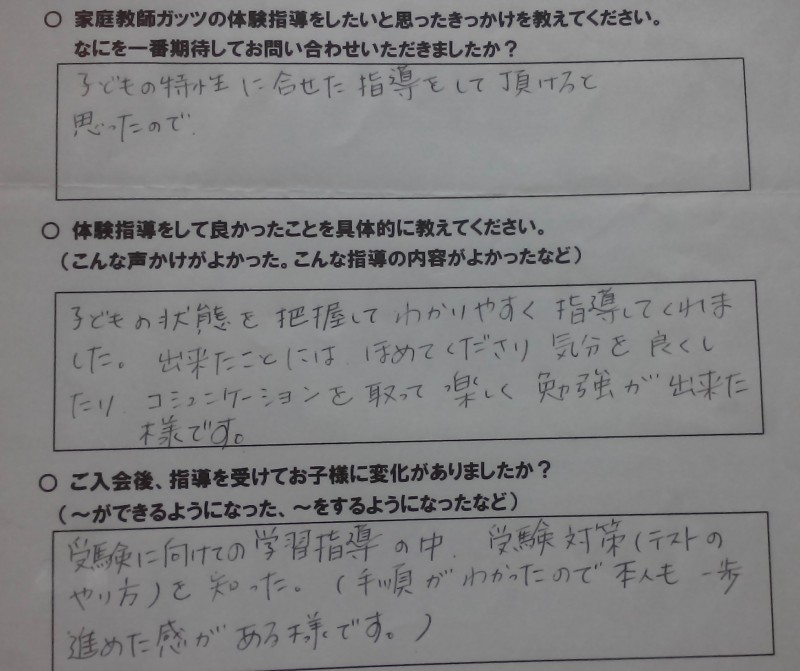 ○ 家庭教師ガッツの体験指導をしたいと思ったきっかけを教えてください。
なにを一番期待してお問い合わせいただきましたか？
子どもの特性に合せた指導をして頂けると
思ったので.
○ 体験指導をして良かったことを具体的に教えてください。
（こんな声かけがよかった。こんな指導の内容がよかったなど）
子どもの状態を把握してわかりやすく指導してくれま
した。出来たことには、ほめてくださり気分を良くし
たり、コミュニケーションを取って楽しく勉強が出来た
様です。
○ ご入会後、指導を受けてお子様に変化がありましたか？
（～ができるようになった、～をするようになったなど）
受験に向けての学習指導の中、受験対策(テストの
やり方)を知った。(手順がわかったので本人も一歩
進めた感がある様です。)